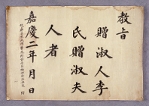 敎旨
贈淑人李
氏贈淑夫
人者
嘉慶二年月日